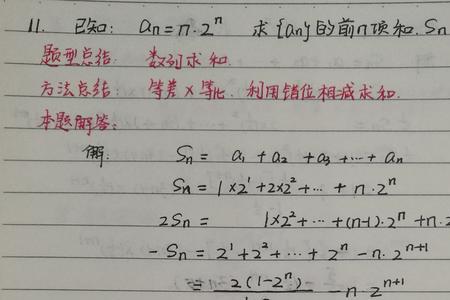 11. 已知: an=n·2ⁿ 求{an}的前n项和.Sn
题型总结: 数列求和.
方法总结: 等差×等比. 利用错位相减求和.
本题解答:
解: Sn = a₁ + a₂ + a₃ +···+ an
Sn = 1×2¹+2×2²+···+ n·2ⁿ
2Sn = 1×2²+···+(n-1)·2ⁿ+n·2
- Sn = 2¹+2²+···+ 2ⁿ -n·2ⁿ⁺¹
= 2(1-2ⁿ) -n·2ⁿ⁺¹